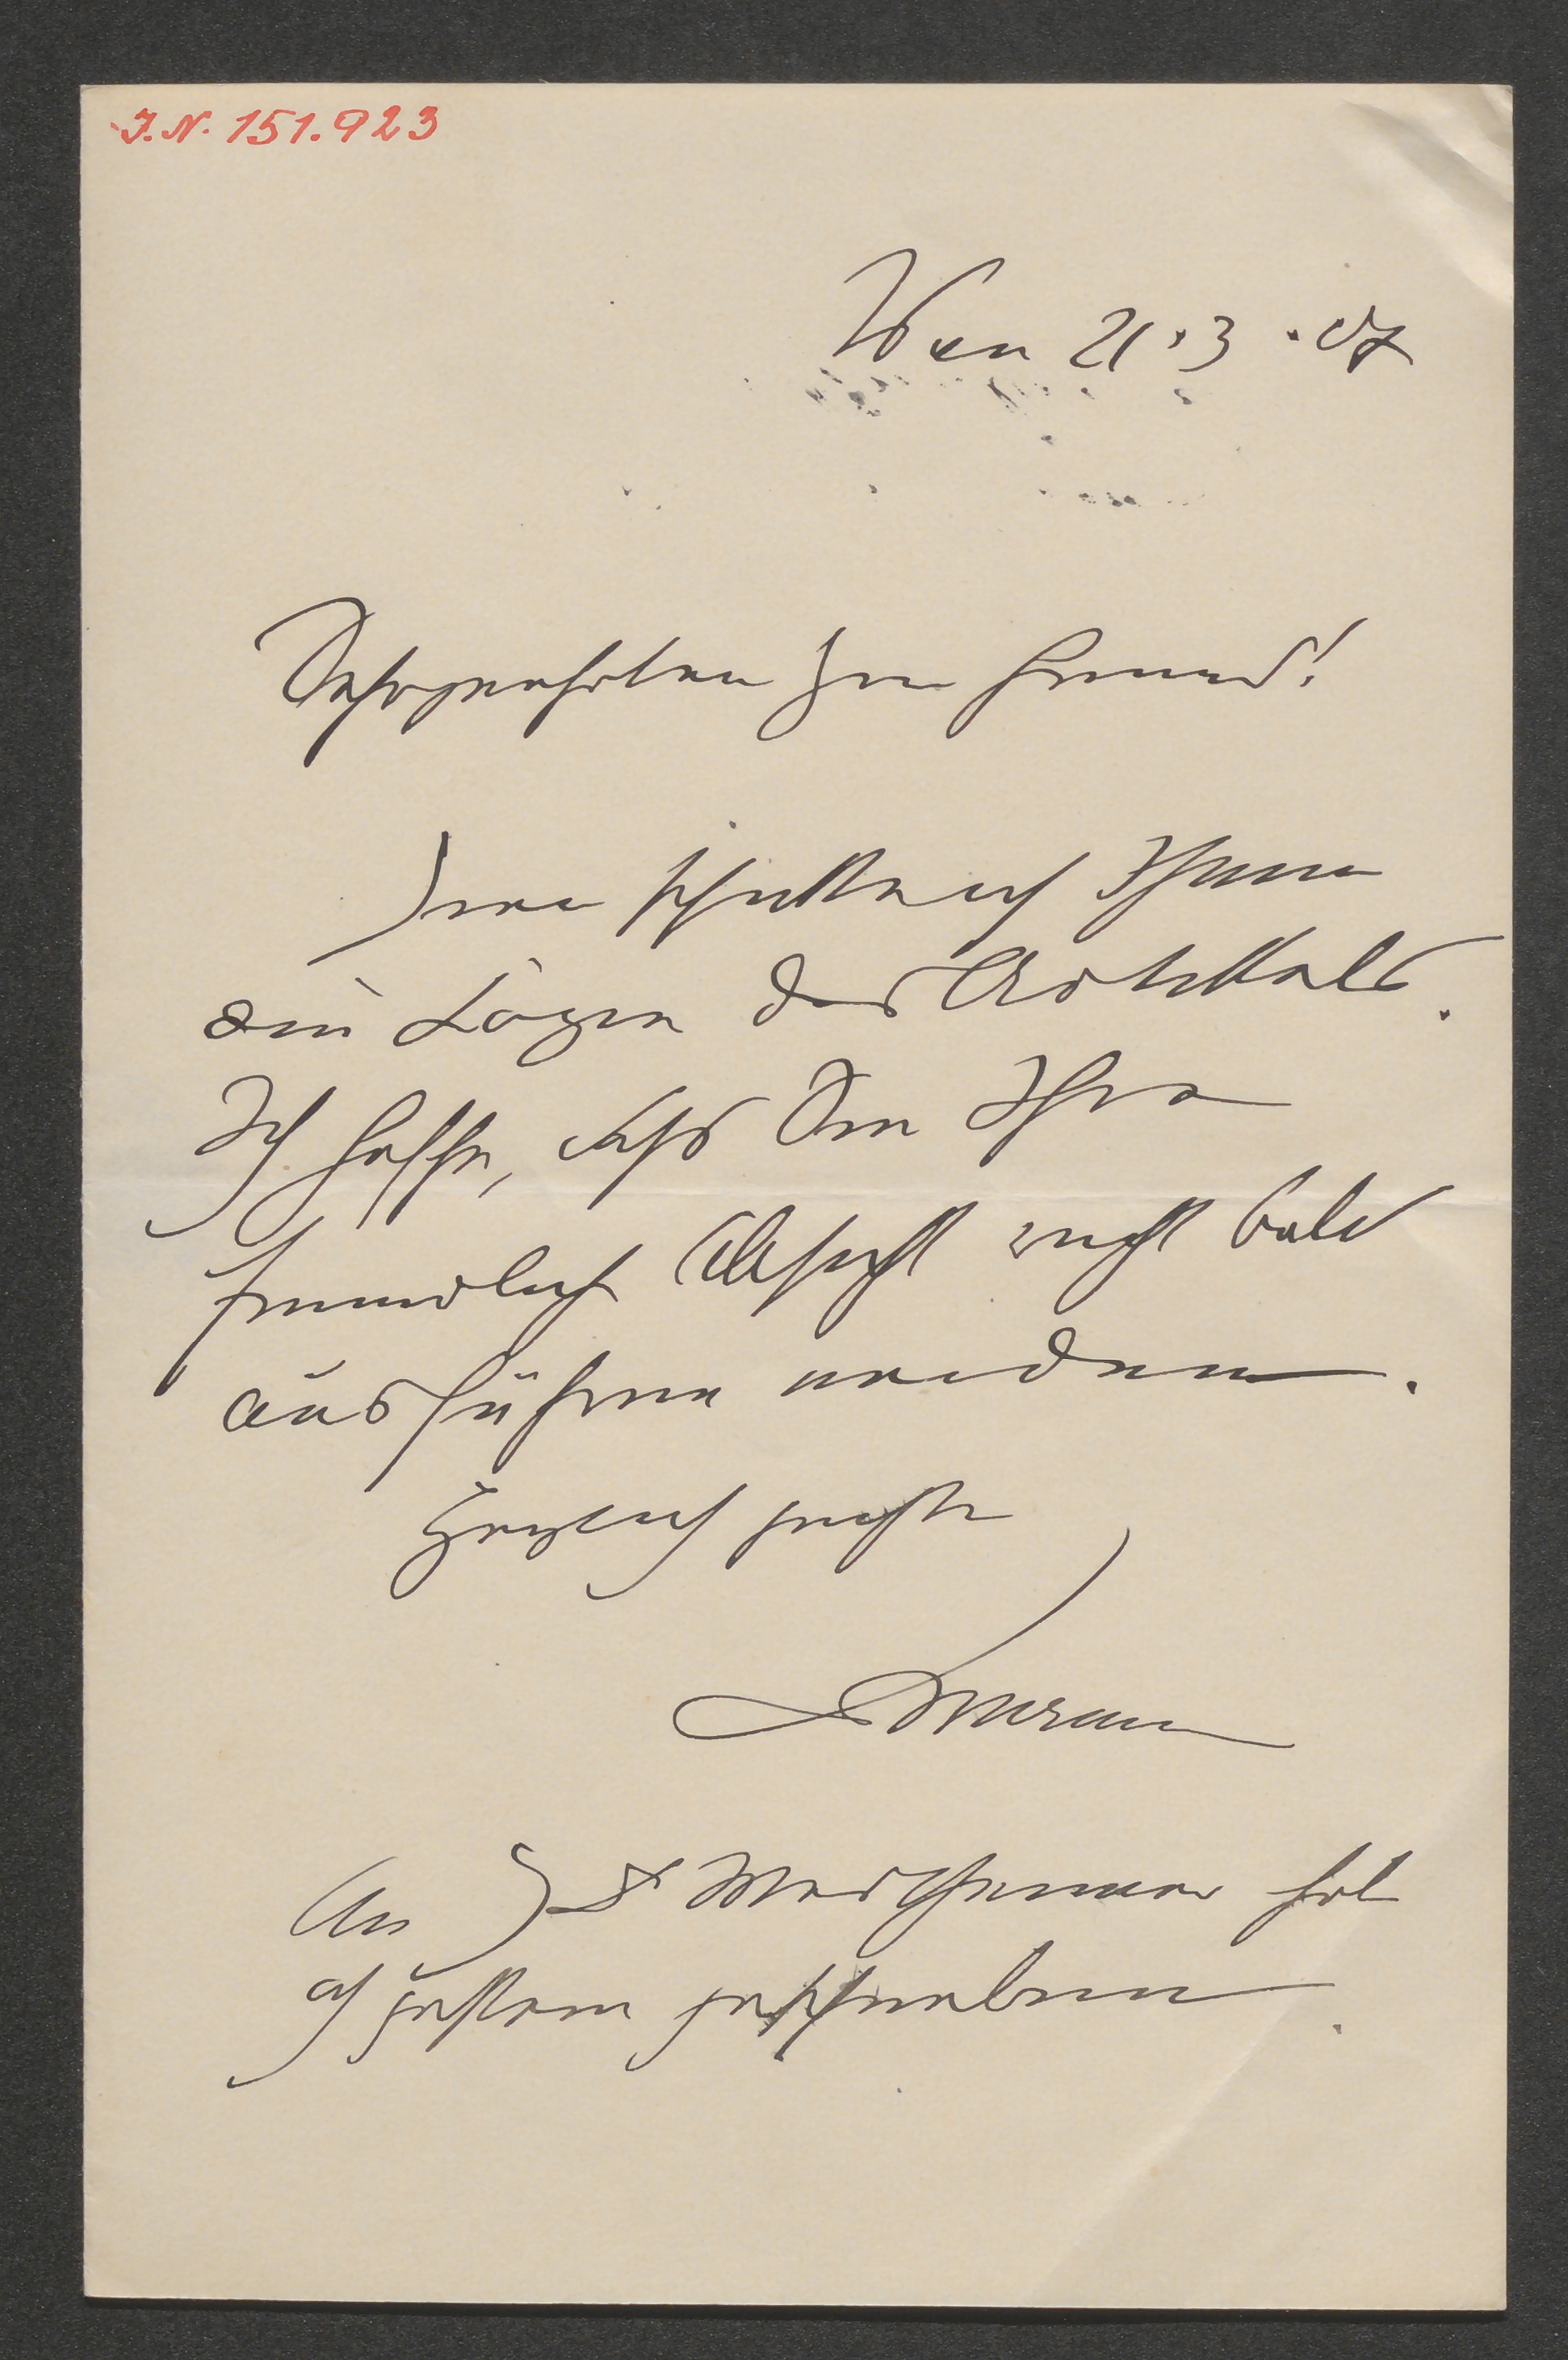 J. N. 151.923
Wien 21.3.07
Sehrgeehrter Herr Freund!
schicke ich Ihnen
die Bogen des Artikels.
Ich hoffe, dass Sie Ihre
freundliche Absicht recht bald
ausführen werden.
Herzlich grüßt
An Dr Wertheimer hab
ich gestern geschrieben.